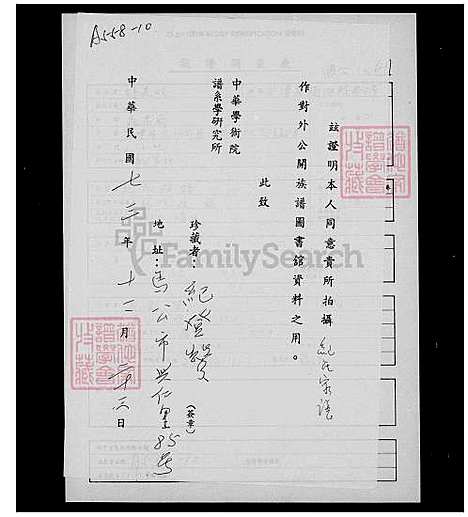 A558-10
茲證明本人同意貴所拍攝紀氏家譜
作對外公開族譜圖書館資料之用。
此致
中華學術院
譜系學研究所
珍藏者：紀燈 (簽章)
地址：馬公市興仁里85号
中華民國七三年十二月廿三日
FamilySearch